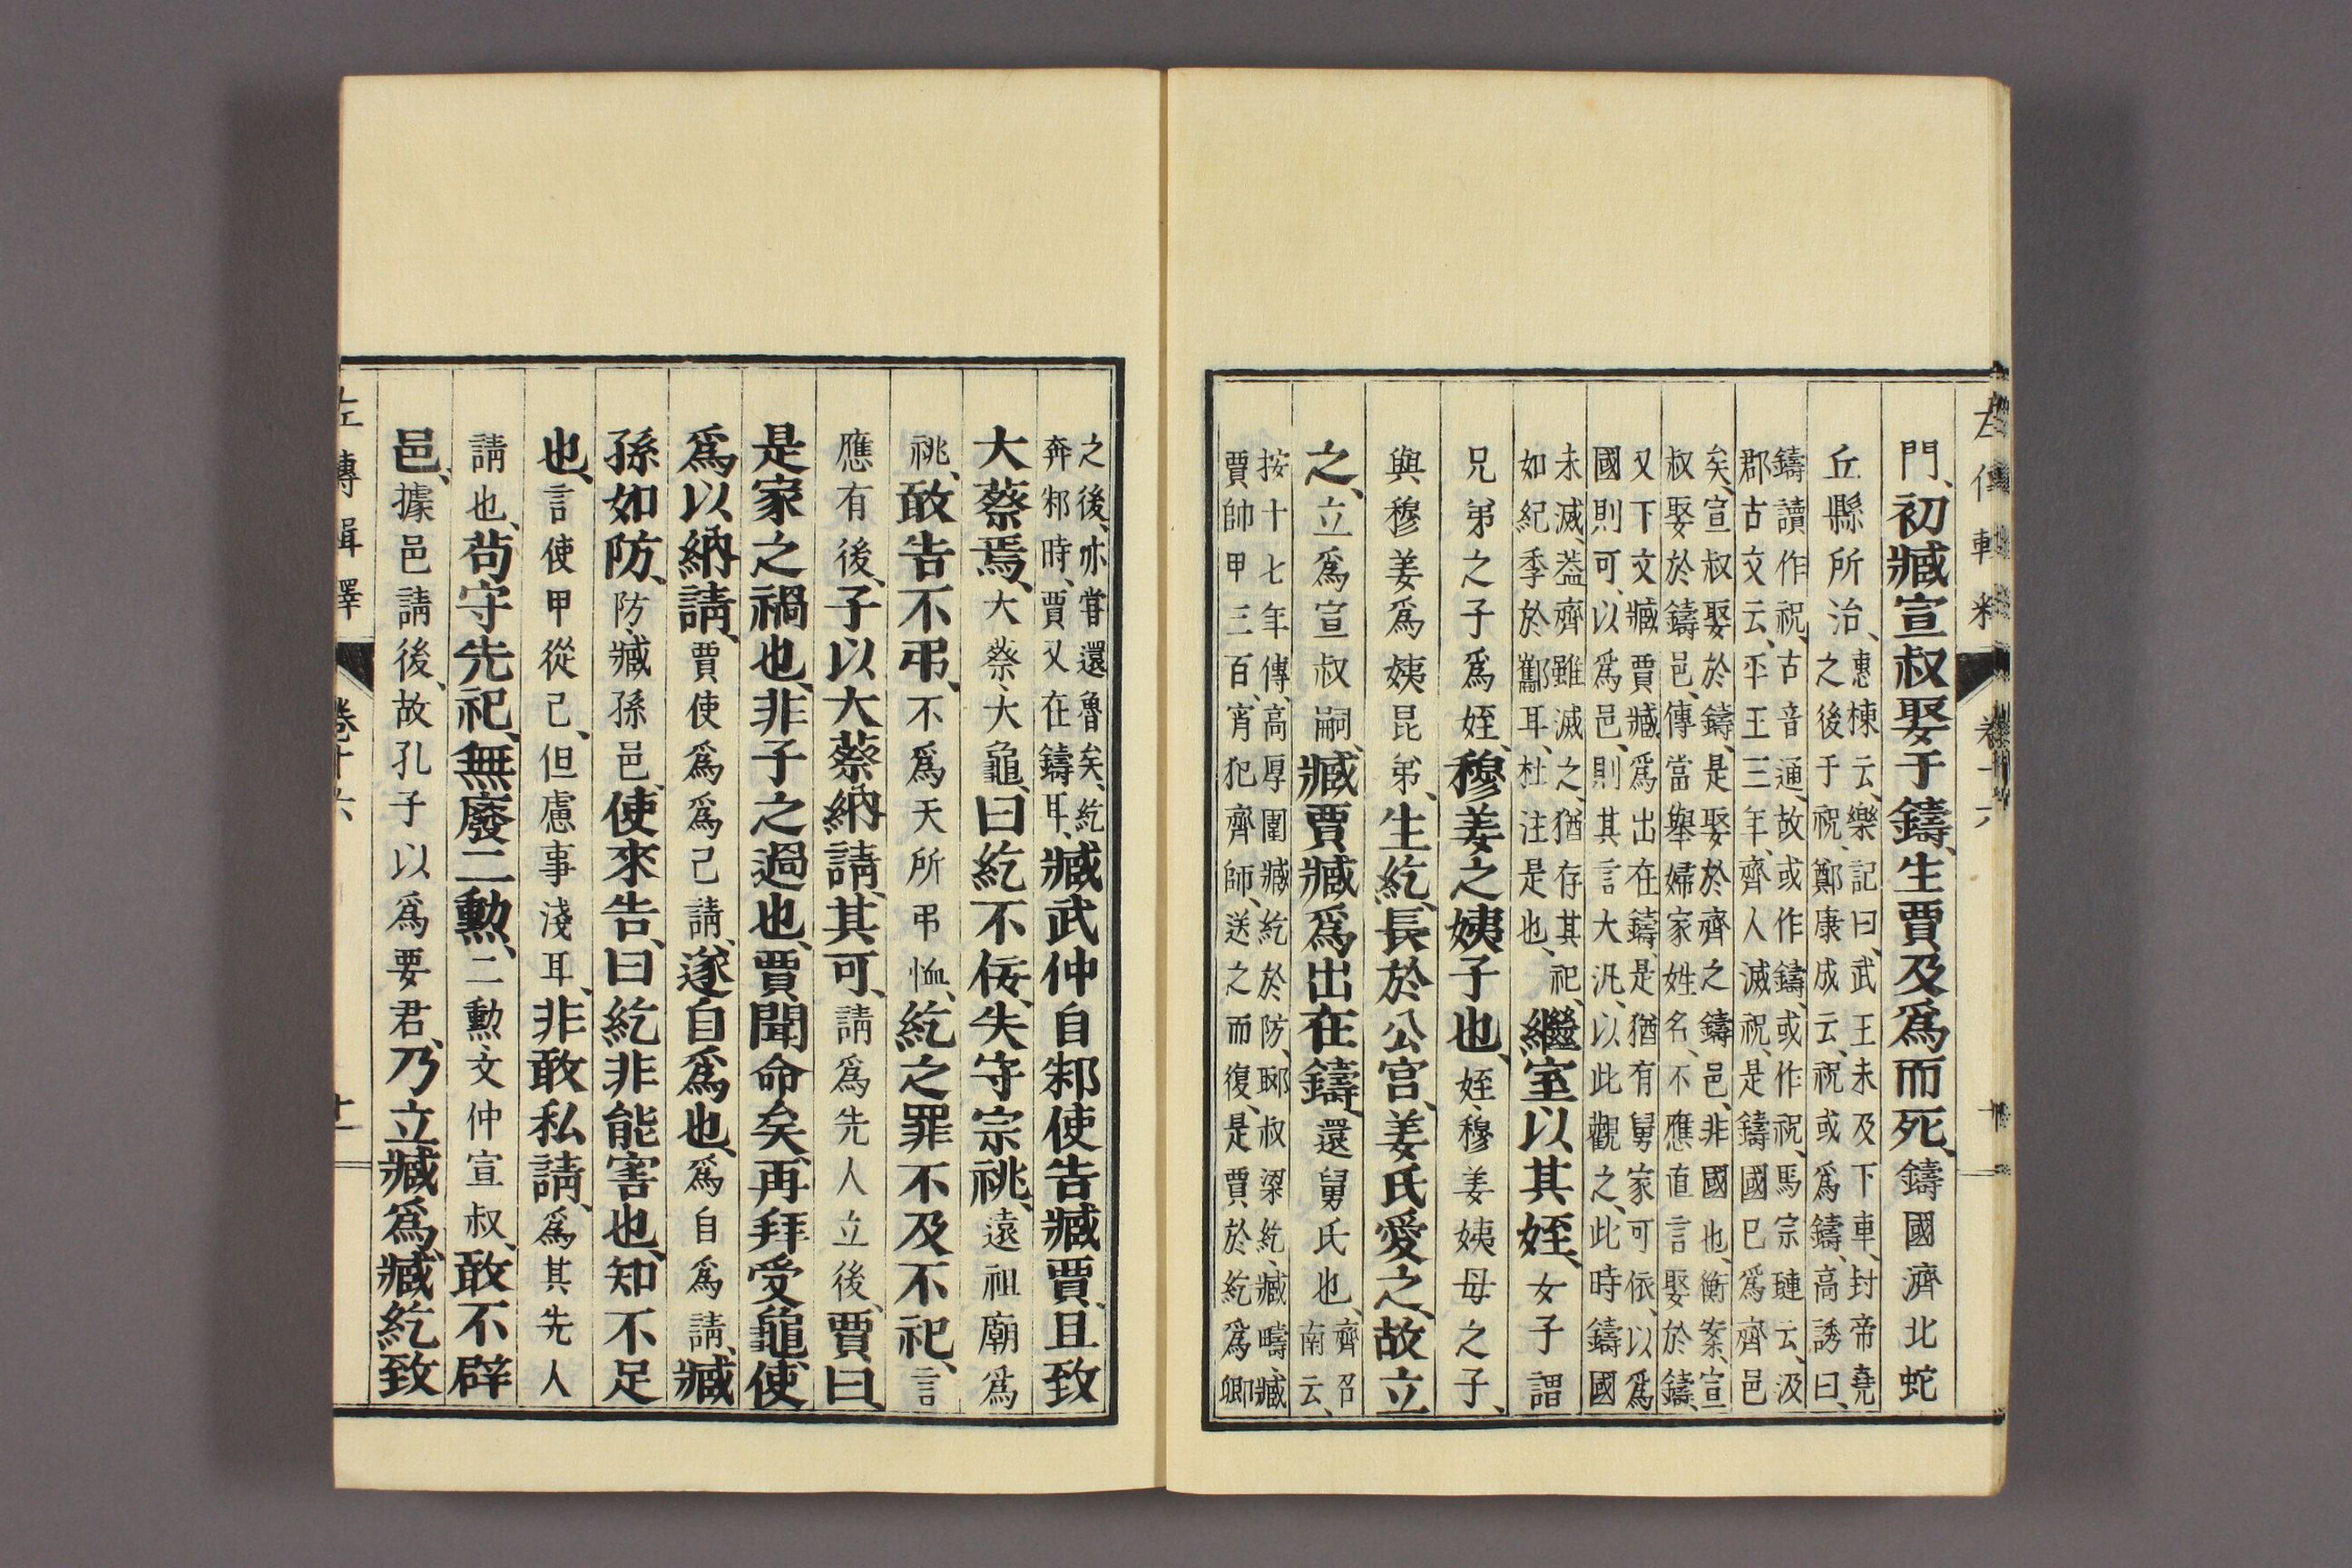 左傳輯釋 卷十六 十
門、初臧宣叔娶于鑄、生賈及爲而死、鑄國濟北蛇
丘縣所治、惠棟云、樂記曰、武王未及下車、封帝堯之後于祝、鄭康成云、祝或爲鑄、高誘曰、
鑄讀作祝、古音通、故或作鑄、或作祝、馬宗璉云、汲郡古文云、平王三年、齊人滅祝、是鑄國已爲齊邑
矣、宣叔娶於鑄、是娶於齊之鑄邑、非國也、衡案、宣叔娶於鑄邑、傳當舉婦家姓名、不應直言娶於鑄、
又下文臧賈臧爲出在鑄、是猶有舅家可依、以爲國則可、以爲邑、則其言大汎、以此觀之、此時鑄國
未滅、葢齊雖滅之、猶存其祀、如紀季於酅耳、杜注是也、繼室以其姪、女子謂
兄弟之子爲姪、穆姜之姨子也、姪、穆姜姨母之子、
與穆姜爲姨昆弟、生紇、長於公宮、姜氏愛之、故立
之、立爲宣叔嗣、臧賈臧爲出在鑄、還舅氏也、齊召南云、
按十七年傳、高厚圍臧紇於防、郰叔梁紇、臧疇、臧賈帥甲三百、宵犯齊師、送之而復、是賈於紇爲卿
之後、亦嘗還魯矣、紇奔邾時、賈又在鑄耳、臧武仲自邾使告臧賈、且致
大蔡焉、大蔡、大龜、曰紇不佞、失守宗祧、遠祖廟爲
祧、敢告不弔、不爲天所弔恤、紇之罪不及不祀、言
應有後、子以大蔡納請、其可、請爲先人立後、賈曰、
是家之禍也、非子之過也、賈聞命矣、再拜受龜、使
爲以納請、賈使爲爲己請、遂自爲也、爲自爲請、臧
孫如防、防、臧孫邑、使來告、曰紇非能害也、知不足
也、言使甲從己、但慮事淺耳、非敢私請、爲其先人
請也、苟守先祀、無廢二勳、二勳、文仲宣叔、敢不辟
邑、據邑請後、故孔子以爲要君、乃立臧爲、臧紇致
左傳輯釋 卷十六 十一